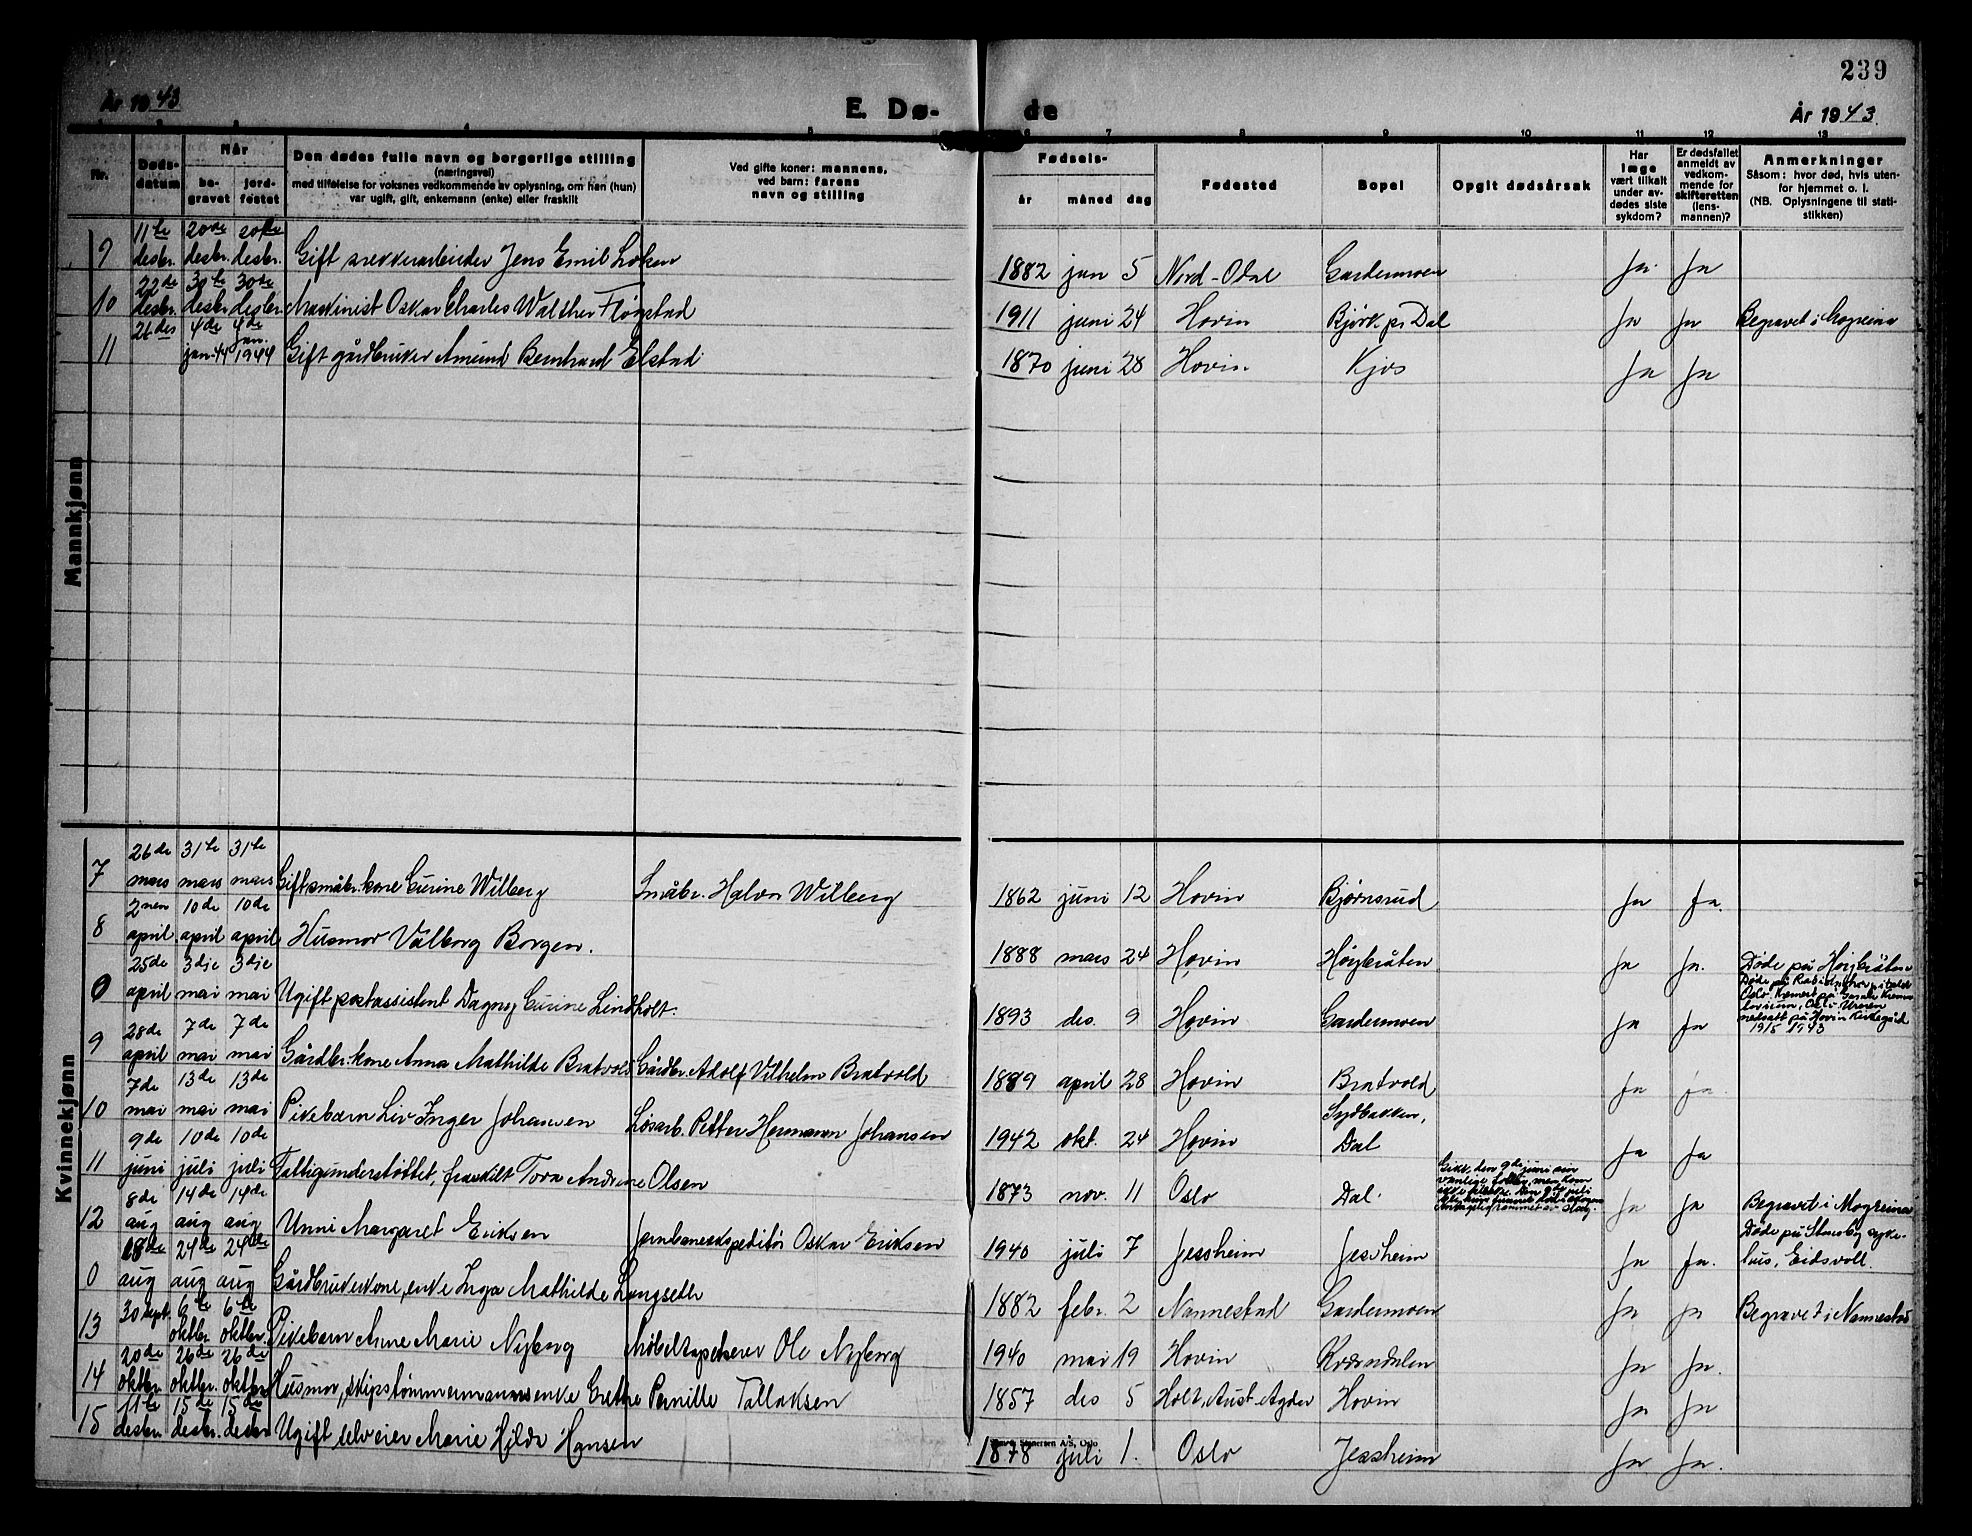 239
År 1943
E. Dø-
de
År 1943
1 2 3 4 5 6 7 8 9 10 11 12 13
Nr.
Døds-
datum
Når
be-
gravet
jord-
festet
Den dødes fulle navn og borgerlige stilling
(næringsvei)
med tilføielse for voksnes vedkommende av oplysning, om han (hun)
var ugift, gift, enkemann (enke) eller fraskilt
Ved gifte koner: mannens,
ved barn: farens
navn og stilling
Fødsels-
år måned dag
Fødested
Bopel
Opgit dødsårsak
Har
læge
vært tilkalt
under av-
dødes siste
sykdom?
Er dødsfallet
anmeldt av
vedkom-
mende for
skifteretten
(lens-
mannen)?
Anmerkninger
Såsom: hvor død, hvis uten-
for hjemmet o. l.
(NB. Oplysningene til stati-
stikken)
Mannkjønn
9 11te desbr. 20de desbr. 20de desbr. Gift Jens Emil Løken 1882 jan 5 Nord-Odal Gardermoen Ja Ja
10 22de desbr. 30te desbr. 30de desbr. Maskinist Oskar Charles Walther Fløgstad 1911 juni 24 Hovin Bjørk pr Dal Ja Ja Begravet i Mogreina
11 26 des 4de jan. 44 4de jan. 1944 Gift gårdbruker Amund Bernhard Elstad 1870 juni 28 Hovin Kjos Ja Ja
Kvinnekjønn
7 26de mars 31te mars 31te mars Gift småbr. kone Gurine Wilberg Småbr. Halvor Wilberg 1862 juni 12 Hovin Bjørnsrud Ja Ja.
8 2nen april 10de april 10de april Husmor Valborg Borgen. 1888 mars 24 Hovin Høybråten Ja Ja. Døde på Høybråten
0 25de april 3dje mai 3dje mai Ugift postassistent Dagny Gurine Lindholt. 1893 des. 9 Hovin Gardermoen Ja Ja Døde på Radiumhospitalet
Oslo. Kremert på
Oslo. Urnen
nedsatt på Hovin Kirkegård
19/5 1943
9 28de april 7de mai 7de mai Gårdbr. kone Anna Mathilde Bratvold Gårdbr. Adolf Vilhelm Bratvold 1889 april 28 Hovin Bratvold Ja Ja
10 7de mai 13de mai 13de mai Pikebarn Liv Inger Johansen Løsarb. Petter Hermann Johansen 1942 okt. 24 Hovin Sydbakken, Dal Ja Ja
11 9de juni 10de juli 10de juli Fattigunderstøttet, fraskilt Tora Andrine Olsen 1873 nov. 11 Oslo Dal. Gikk den 9de juni sin
vanlige men kom
ikke tilbake. Den 9de juli
ble hun funnet død i skogen
av slag. Ja Ja Begravet i Mogreina
12 8de aug 14de aug 14de aug Unni Margaret Eriksen Jernbaneekspeditør Oskar Eriksen 1940 juli 7 Jessheim Jessheim Ja Ja. Døde på Stensby syke-
hus, Eidsvoll.
0 18de aug 24de aug 24de aug Gårdbrukerkone, enke Inga Mathilde Langseth 1882 febr. 2 Nannestad Gardermoen Ja Ja Begravet i Nannestad
13 30 sept. 6te oktbr. 6te oktbr. Pikebarn Anne Marie Nyborg Møbeltapetserer Ole Nyborg 1940 mai 19 Hovin Ja Ja.
14 20de oktbr. 26de oktbr. 26de oktbr Husmor, skipstømmermannsenke Grethe Pernille Tallaksen 1857 des 5 Holt, Aust-Agder Hovin Ja Ja.
15 11te desbr. 15de desbr. 15de desbr Ugift selveier Marie Hilda Hansen 1878 juli 1. Oslo Jessheim Ja Ja.
A/S, Oslo